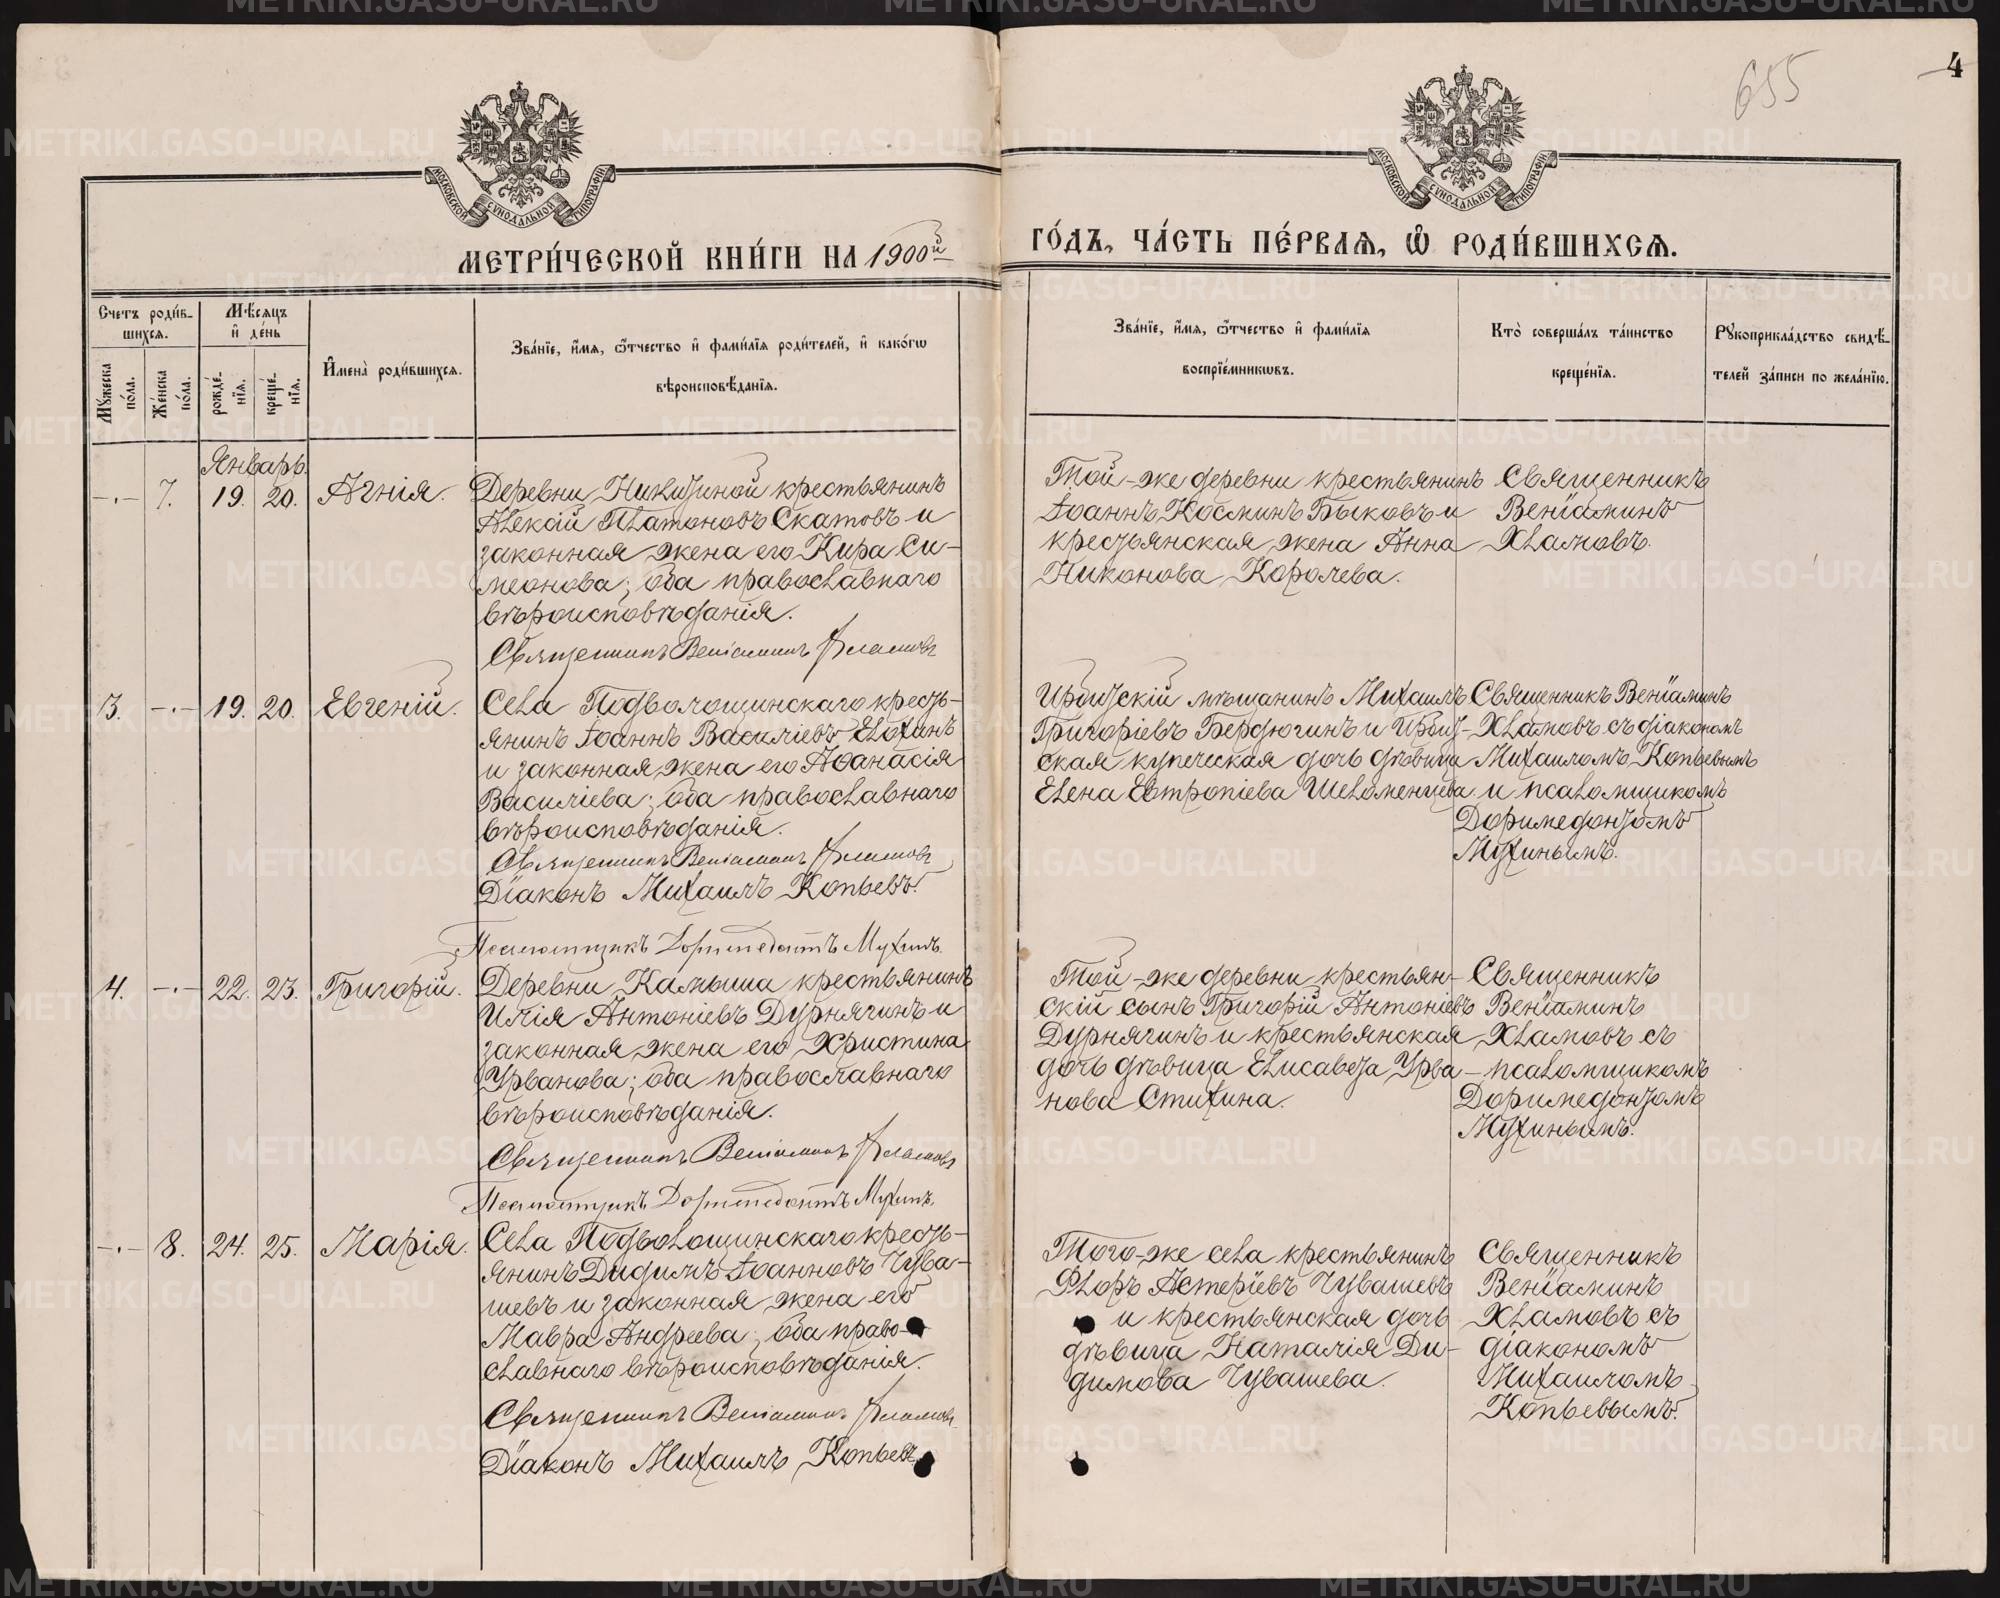 655
4
МОСКОВСКОЙ СѴНОДАЛЬНОЙ ТИПОГРАФІИ
МОСКОВСКОЙ СѴНОДАЛЬНОЙ ТИПОГРАФІИ
МЕТРИ́ЧЕСКОЙ КНИ́ГИ НА 1900й
ГО́ДЪ, ЧА́СТЬ ПЕ́РВАѦ, Ѡ҆ РОДИ́ВШИХСѦ.
Счетъ роди́в-
шихсѧ.
Мѣ́сѧцъ
и҆ де́нь
Мꙋ́жеска по́ла.
Же́нска по́ла.
рожде́-
нїѧ.
креще́-
нїѧ.
И҆мена̀ роди́вшихсѧ.
Зва́нїе, и҆́мѧ, ѻ҆́тчество и҆ фами́лїѧ роди́телей, и҆ како́гѡ
вѣроисповѣ́данїѧ.
Зва́нїе, и҆́мѧ, ѻ҆́тчество и҆ фами́лїѧ
воспрїе́мникѡвъ.
Кто̀ соверша́лъ та́инство
креще́нїѧ.
Рꙋкоприкла́дство свидѣ́-
телей за́писи по жела́нїю.
Январь.
—·— 7. 19. 20. Агнія.
Деревни Никитиной крестьянинъ
Алексій Платоновъ Скатовъ и
законная жена его Кира Си-
меонова; оба православнаго
вѣроисповѣданія.
Священникъ Веніаминъ Хламовъ
Той-же деревни крестьянинъ
Іоаннъ Космин Быковъ и
крестьянская жена Анна
Никонова Королева.
Священникъ
Веніаминъ
Хламовъ.
3. —·— 19. 20. Евгеній.
Села Подволошинскаго кресть-
янинъ Іоаннъ Василіевъ Елохинъ
и законная жена его Аѳанасія
Василіева; оба православнаго
вѣроисповѣданія.
Священникъ Веніаминъ Хламовъ
Діаконъ Михаилъ Копьевъ.
Псаломщикъ Доримедонтъ Мухинъ.
Ирбитскій мѣщанинъ Михаилъ
Григоріевъ Бердюгинъ и Ирбит-
ская купеческая дочь дѣвица
Елена Евтропіева Шеломенцева.
Священникъ Веніаминъ
Хламовъ съ діакономъ
Михаиломъ Копьевымъ
и псаломщикомъ
Доримедонтомъ
Мухинымъ.
4. —·— 22. 23. Григорій.
Деревни Камыша крестьянинъ
Илія Антоніевъ Дурнягинъ и
законная жена его Христина
Урванова; оба православнаго
вѣроисповѣданія.
Священникъ Веніаминъ Хламовъ
Псаломщикъ Доримедонтъ Мухинъ.
Той-же деревни крестьян-
скій сынъ Григорій Антоніевъ
Дурнягинъ и крестьянская
дочь дѣвица Елисавета Урва-
нова Стихина.
Священникъ
Веніаминъ
Хламовъ съ
псаломщикомъ
Доримедонтомъ
Мухинымъ.
—·— 8. 24. 25. Марія.
Села Подволошинскаго кресть-
янинъ Дидимъ Іоанновъ Чува-
шевъ и законная жена его
Мавра Андреева; оба право-
славнаго вѣроисповѣданія.
Священникъ Веніаминъ Хламовъ
Діаконъ Михаилъ Копьевъ.
Того-же села крестьянинъ
Флоръ Астеріевъ Чувашевъ
и крестьянская дочь
дѣвица Наталія Ди-
димова Чувашева.
Священникъ
Веніаминъ
Хламовъ съ
діакономъ
Михаиломъ
Копьевымъ.
METRIKI.GASO-URAL.RU